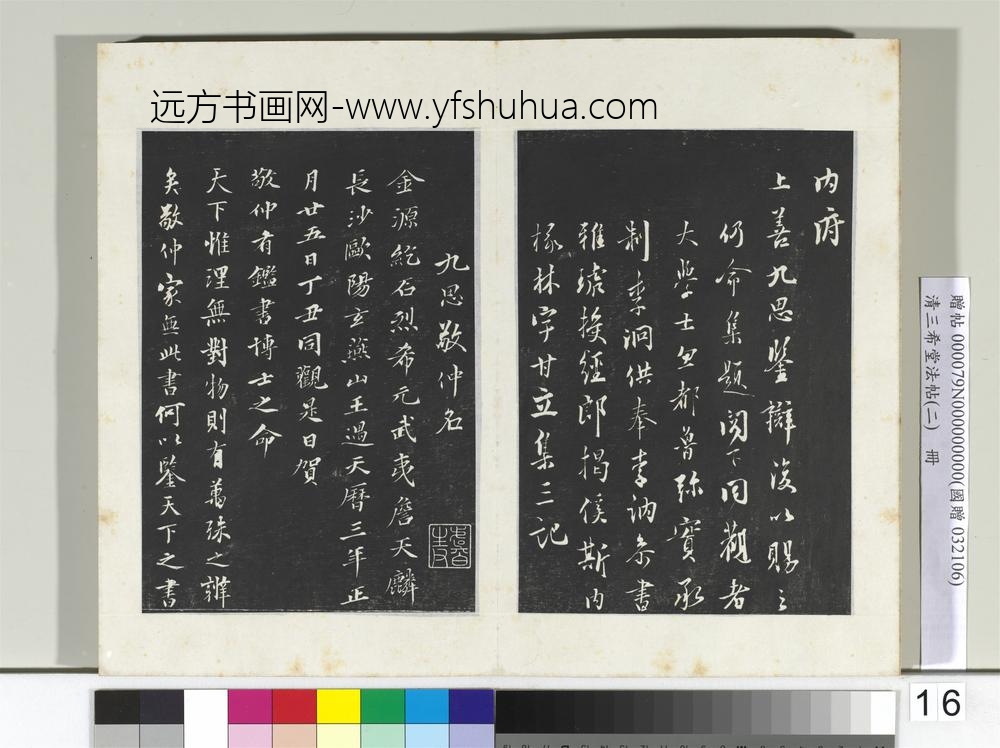 远方书画网-www.yfshuhua.com
内府
上善九思鉴辩后以赐之
仍命集题阁下同观者
大学士忽都鲁弥实承
制李泂供奉李讷参书
雅琥授经郎揭傒斯内
掾林宇甘立集三记
九思敬仲名
金源纥石烈希元武夷詹天麟
長沙歐陽玄燕山王遇天曆三年正
月廿五日丁丑同觀是日賀
敬仲有鑑書博士之命
天下惟理無對物則有萬殊之雜
矣敬仲家無此書何以鑒天下之書
贈帖 000079N000000000(國贈 032106)
清三希堂法帖(二) 冊
16